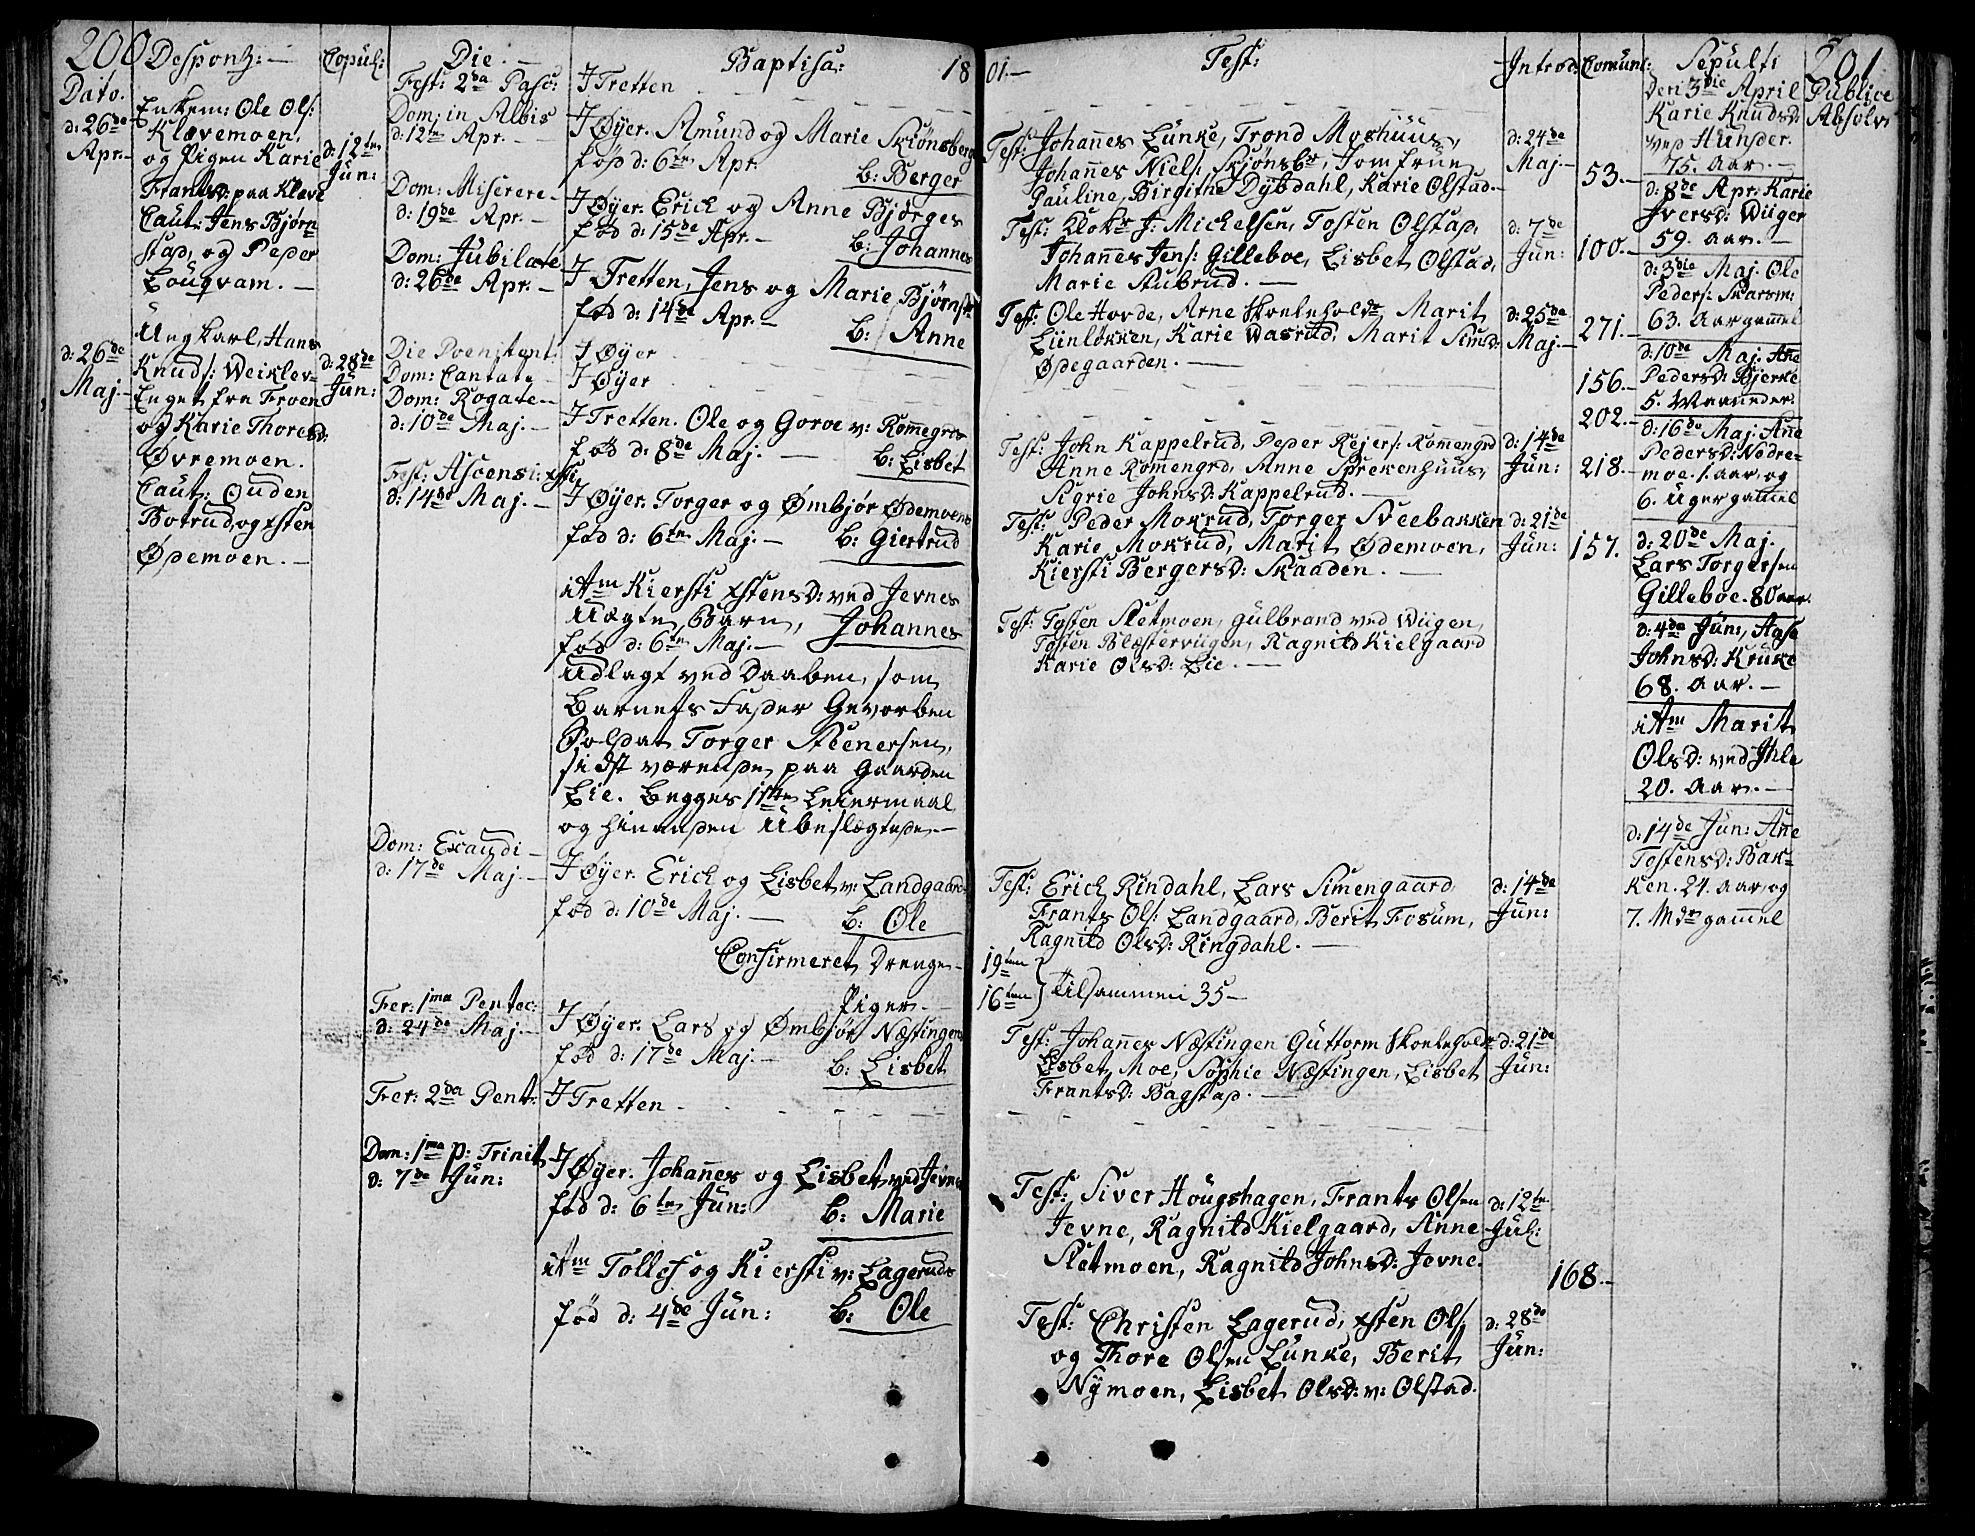 200
Despons: —
Copul:
Die. —
Baptisa:
18
Dato.
d: 26de
Apr. —
Enkem: Ole Ols:
Klævemoen,
og Pigen Karie
Frantsd: paa Kleve
Caut: Jens Bjørn
stad, og Peder
Lougvam. —
d: 12ten
Jun:
d: 26de
Maj. —
Ungkarl, Hans
Knuds: Weiklev-
Enget fra Froen
og Karie Thoresd:
Øvremoen.
Caut: Ouden
Botrud, og xsten
Ødemoen. —
d: 28de
Jun:
Fest: 2da Pasc:
Dom: in Albis
d: 12te Apr. —
Dom: Miserere —
d: 19de Apr. —
Dom: Jubilate
d: 26de Apr. —
Die Poenitent:
Dom: Cantate —
Dom: Rogate —
d: 10de Maj. —
Fest: Ascensi: xsti
d: 14de Maj. —
Dom: Exaudi —
d: 17de Maj. —
Fer: 1ma Pentec:
d: 24de Maj. —
Fer: 2da Pent:
Dom: 1ma p: Trinit
d: 7de Jun:
J Tretten
J Øyer. Amund og Marie Skiønsberg
fød d: 6te Apr.
b: Berger
J Øyer. Erich og Anne Bjørges
fød d: 15de Apr. —
b: Johannes
J Tretten, Jens og Marie Bjørnst
fød d: 14de Apr. —
b: Anne
J Øyer
J Øyer
J Tretten. Ole og Goroe v: Romegrs
fød d: 8de Maj. —
b: Lisbet
J Øyer. Torger og Ømbjør Ødemoens
fød d: 6te Maj. — b: Giertrud
it̄m Kiersti xstensd: ved Jevnes
Uægte Barn, Johannes
fød d: 6te Maj. —
Udlagt ved Daaben, som
Barnets Fader Gevorben
Soldat Torger Steenersen,
sidst værende paa Gaarden
Lie. Begges 1ste Leiermaal
og hinanden Ubeslægtede. —
J Øyer. Erich og Lisbet v: Landgaard:
fød d: 10de Maj. —
b: Ole
Confirmeret Drenge —
Piger —
J Øyer. Lars og Ømbjør Næstingens
fød d: 17de Maj. —
b: Lisbet
J Tretten
J Øyer. Johannes og Lisbet ved Jevne
fød d: 6te Jun:
b: Marie
it̄m Tollef og Kiersti v: Lageruds
fød d: 4de Jun: b: Ole
01. —
Test:
Introd:
Comunt:
Sepulti
201
Publice
Absolv:
Test: Johannes Lunke, Trond Moshuus,
Johannes Niels: Skjønsbr, Jomfrue
Pauline, Birgithe Dybdahl, Karie Olstad. —
d: 24de
Maj —
53. —
Test: Klokr J: Michelsen, Tosten Olstad,
Johannes Jens: Gilleboe, Lisbet Olstad,
Marie Stubrud. —
d: 7de
Jun:
100. —
Test: Ole Hovde, Arne Skoleholdr Marit
Lienløkken, Karie Wasrud, Marit Simd:
Ødegaarden. —
d: 25de
Maj. —
271. —
156. —
202. —
Test: John Kappelrud, Peder Rejers: Romengrd
Anne Romengrd, Anne Sprekenhuus,
Sigrie Johnsd: Kappelrud. —
d: 14de
Jun:
218. —
Test: Peder Mokrud, Torger Sveebakken
Karie Mokrud, Marit Ødemoen,
Kiersti Bergersd: Skaaden. —
d: 21de
Jun:
157.
Test: Tosten Sletmoen, Gulbrand ved Wiigen,
Tosten Blæsterviigen, Ragnild Kielgaard
Karie Olsd: Lie. —
Test: Erich Rindahl, Lars Simengaard,
Frants Ols: Landgaard, Berit Fosum,
Ragnild Olsd: Ringdahl. —
d: 14de
Jun:
19ten
16ten } tilsammen 35 —
Test: Johannes Næstingen Guttorm Skoleholdr
Lisbet Moe, Sophie Næstingen, Lisbet
Frantsd: Bagstad. —
d: 21de
Jun:
Test: Siver Hougshagen, Frants Olsen
Jevne, Ragnild Kielgaard, Anne
Sletmoen, Ragnild Johnsd: Jevne.
d: 12te
Jul:
168. —
Test: Christen Lagerud, xsten Ols:
og Thore Olsen Lunke, Berit
Nymoen, Lisbet Olsd: v: Olstad.
d: 28de
Jun:
Den 3die April
Karie Knudsd:
ved Hunder.
75. Aar. —
d: 8de Apr: Karie
Iversd: Wiiger
59. Aar. —
d: 3die Maj. Ole
Peders: Skarsm:
63. Aar gammel
d: 10de Maj. Ane
Pedersd: Bjerke
5. Maaneder.
d: 16de Maj. Ane
Pedersd: Nødre-
moe. 1. aar, og
6. Uger gammel
d: 20de Maj.
Lars Torgersen
Gilleboe. 80 aar.
d: 4de Jun: Aase
Johnsd: Kruke
68. Aar. —
it̄m Marit
Olsd: ved Ihle
20. Aar. —
d: 14de Jun: Ane
Tostensd: Bak-
ken. 24. Aar, og
7. Mdr gammel